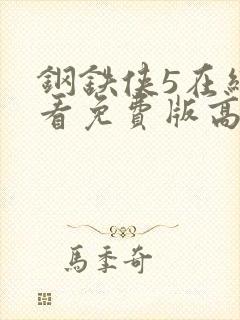 鋼鉄俠5在線
看免費版高
馬季奇